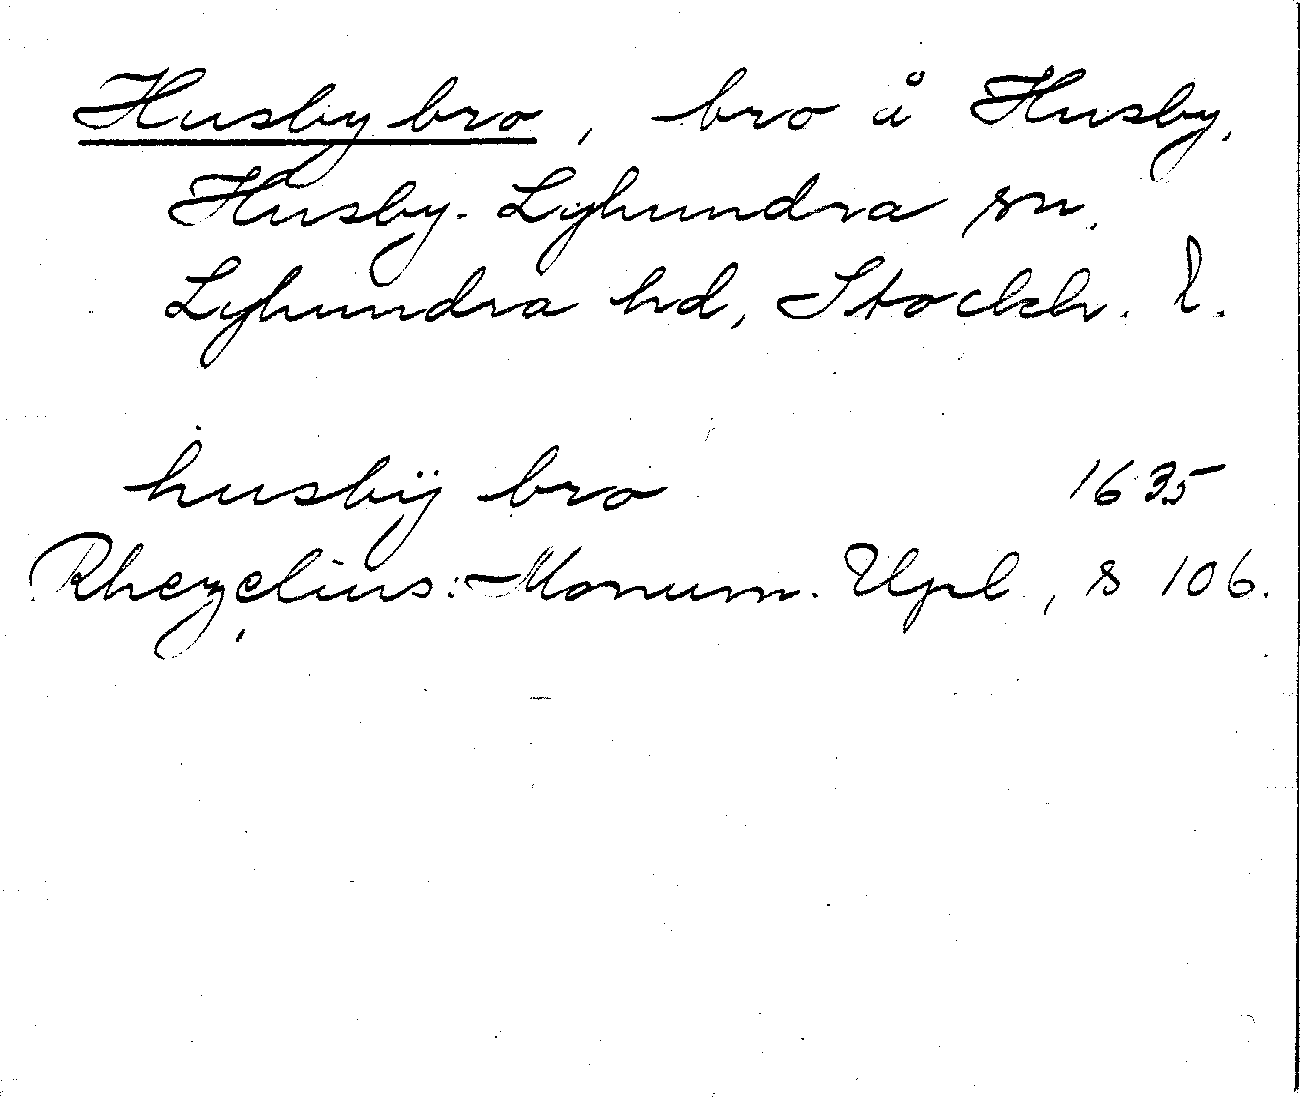 Husby bro, bro å Husby,
Husby-Lyhundra sn.
Lyhundra hd, Stockh. l.
husbÿ bro 1635
Rhezelius: Monum. Upl., s 106.